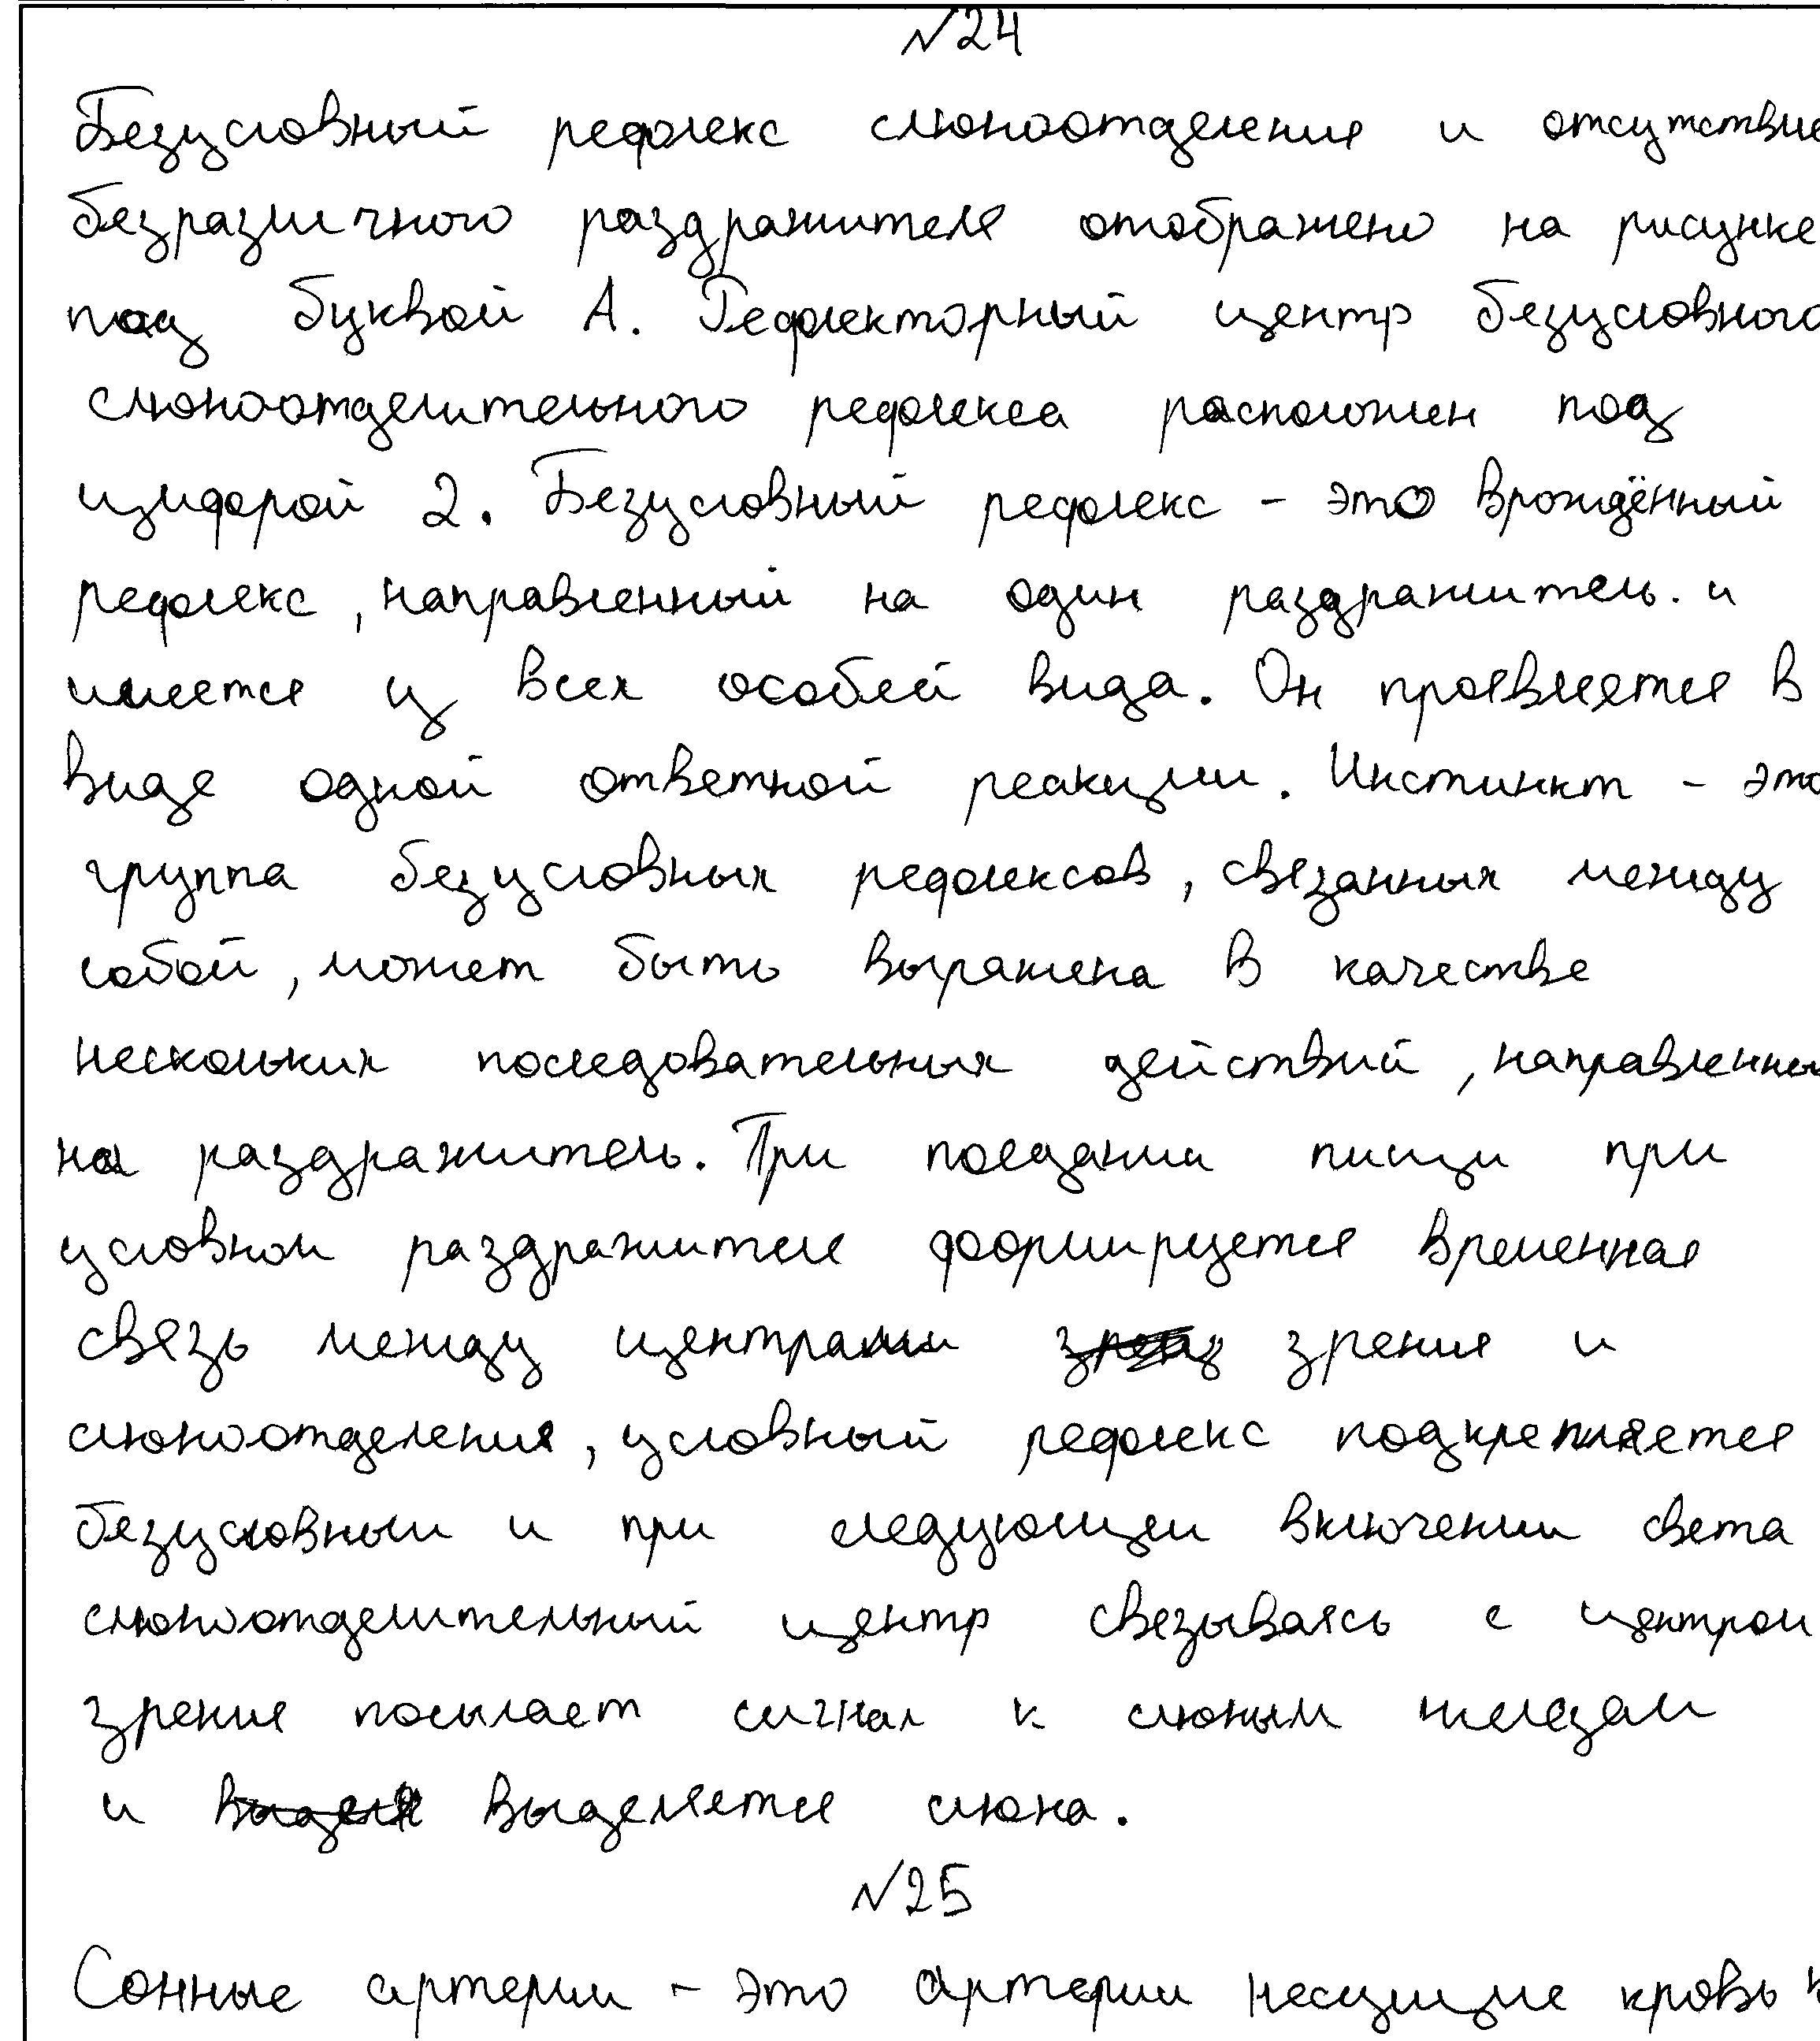 №24
Безусловный рефлекс слюноотделения и отсутствие
безразличного раздражителя отображено на рисунке
под буквой А. Рефлекторный центр безусловного
слюноотделительного рефлекса расположен под
цифрой 2. Безусловный рефлекс - это врождённый
рефлекс, направленный на один раздражитель. и
имеется у всех особей вида. Он проявляется в
виде одной ответной реакции. Инстинкт - это
группа безусловных рефлексов, связанных между
собой, может быть выражена в качестве
нескольких последовательных действий, направленны
на раздражитель. При поедании пищи при
условном раздражителе формируется временная
связь между центрами зрения и
слюноотделения, условный рефлекс подкрепляется
безусловным и при следующем включении света
слюноотделительный центр связываясь с центром
зрения посылает сигнал к слюным железам
и выделяется слюна.
№25
Сонные артерии - это артерии несущие кровь к